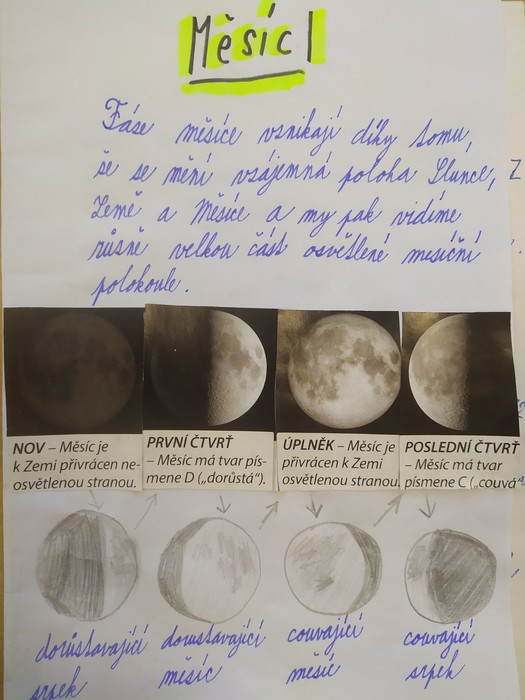 Měsíc
Fáze měsíce vznikají díky tomu,
že se mění vzájemná poloha Slunce,
Země a Měsíce a my pak vidíme
různě velkou část osvětlené mesíční
polokoule.
NOV – Měsíc je
k Zemi přivrácen ne-
osvětlenou stranou.
PRVNÍ ČTVRŤ
– Měsíc má tvar pís-
mene D („dorůstá“).
ÚPLNĚK – Měsíc je
přivrácen k Zemi
osvětlenou stranou.
POSLEDNÍ ČTVRŤ
– Měsíc má tvar
písmene C („couvá“
dorůstavající
srpek
dorustavající
měsíc
couvající
měsíc
couvající
srpek
Z